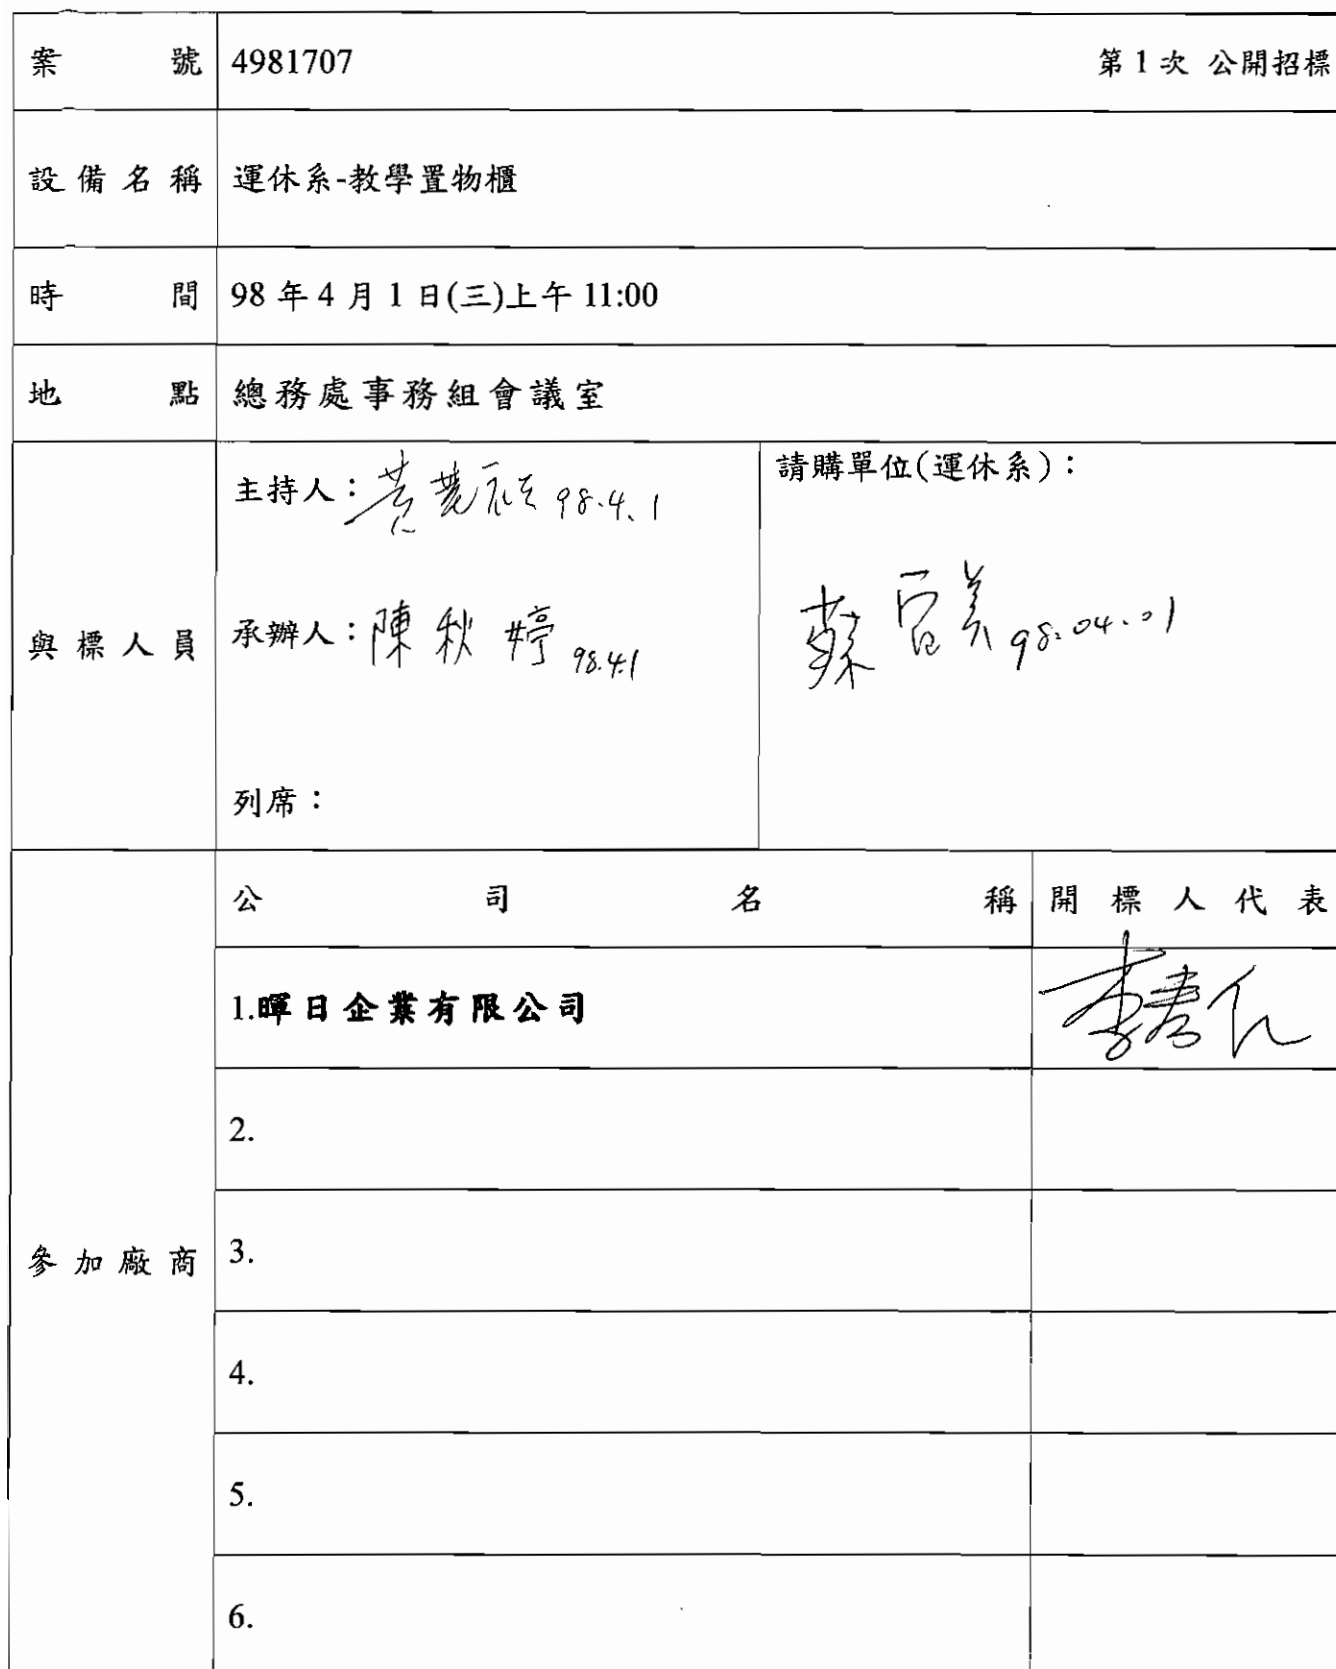 案號 4981707 第1次 公開招標
設備名稱 運休系-教學置物櫃
時間 98年4月1日(三)上午11:00
地點 總務處事務組會議室
與標人員
主持人：黃 98.4.1
承辦人：陳秋婷 98.4.1
列席：
請購單位(運休系)：
蘇 美 98.04.01
參加廠商
公司名稱 開標人代表
1.暉日企業有限公司 李
2.
3.
4.
5.
6.